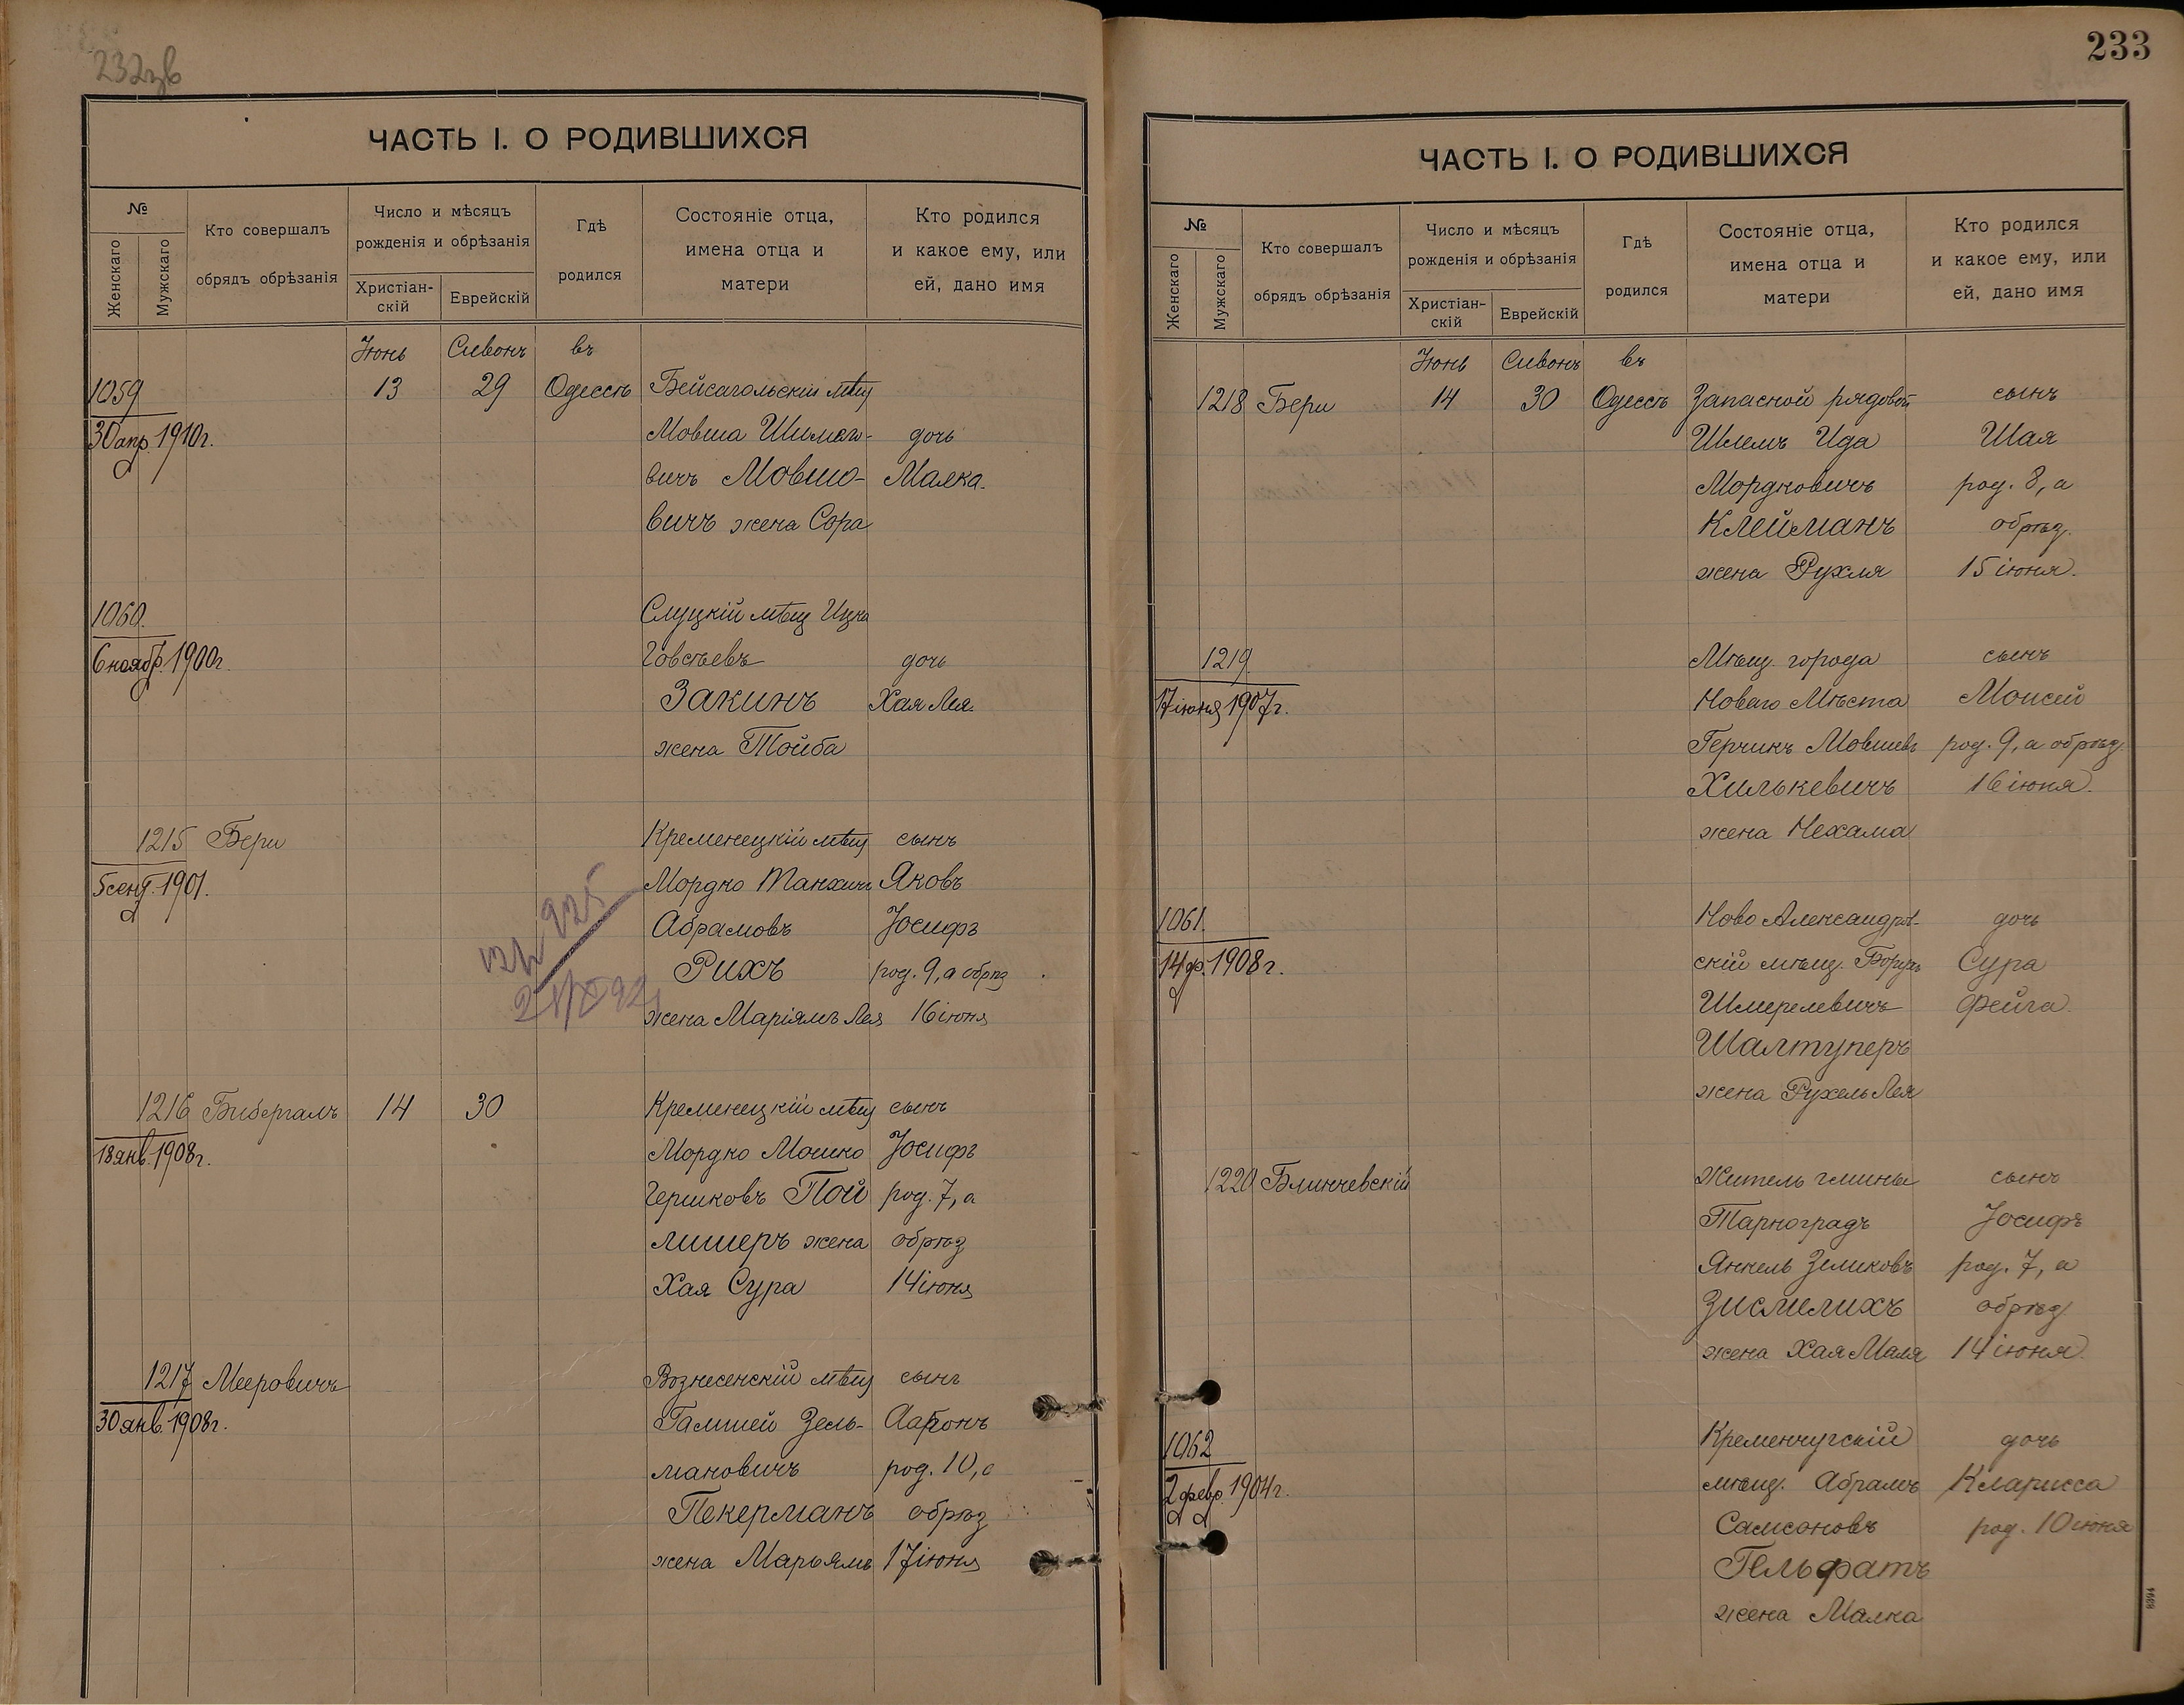 232зв
ЧАСТЬ I. О РОДИВШИХСЯ
№
Женскаго
Мужскаго
Кто совершалъ
обрядъ обрѣзанія
Число и мѣсяцъ
рожденія и обрѣзанія
Христіан-
скій
Еврейскій
Гдѣ
родился
Состояніе отца,
имена отца и
матери
Кто родился
и какое ему, или
ей, дано имя
Іюнь Сивонъ въ
1059 13 29 Одессѣ Бейсагольскій мѣщ
30 апр. 1910г. Мовша Шимог- дочь
вичъ Мовшо- Малка.
вичъ жена Сора
1060. Слуцкій мѣщ Ицка
6 ноябр. 1900г. Говсѣевъ дочь
Закинъ Хая Лея.
жена Тойба
1215 Бери Кременецкій мѣщ сынъ
5 сент. 1901. Мордко Танхимъ Яковъ
Абрамовъ Іосифъ
Рихъ род. 9, а обрѣз
жена Маріямъ Лея 16 іюня
1216 Бибергалъ 14 30 Кременецкій мѣщ сынъ
18 янв. 1908г. Мордко Мошко Іосифъ
Гершковъ Пой род. 7, а
лишеръ жена обрѣз
Хая Сура 14 іюня
1217 Мееровичъ Вознесенскій мѣщ сынъ
30 янв. 1908г. Гамшей Зель- Ааронъ
мановичъ род. 10, а
Пекерманъ обрѣз
жена Марьямъ 17 іюня
233
ЧАСТЬ I. О РОДИВШИХСЯ
№
Женскаго
Мужскаго
Кто совершалъ
обрядъ обрѣзанія
Число и мѣсяцъ
рожденія и обрѣзанія
Христіан-
скій
Еврейскій
Гдѣ
родился
Состояніе отца,
имена отца и
матери
Кто родился
и какое ему, или
ей, дано имя
Іюнь Сивонъ въ
1218 Бери 14 30 Одессѣ Запасной рядовой сынъ
Шлемъ Ида Шая
Мордковичъ род. 8, а
Клейманъ обрѣз.
жена Рухля 15 іюня.
1219 Мѣщ. города сынъ
17 іюня 1907г. Новаго Мѣста Моисей
Герчикъ Мовшевъ род. 9, а обрѣз.
Хилькевичъ 16 іюня.
жена Нехама
1061. Ново Александров- дочь
14 ф. 1908г. скій мѣщ. Борухъ Сура
Шмерелевичъ Фейга
Шалтуперъ
жена Рухель Лея
1220 Блинчевскій Житель гмины сынъ
Тарноградъ Іосифъ
Янкель Зеликовъ род. 7, а
Зисмилихъ обрѣз
жена Хая Маля 14 іюня.
1062 Кременчугскій дочь
2 февр. 1904г. мѣщ. Абрамъ Кларисса
Самсоновъ род. 10 іюня
Гельфатъ
жена Малка
8394